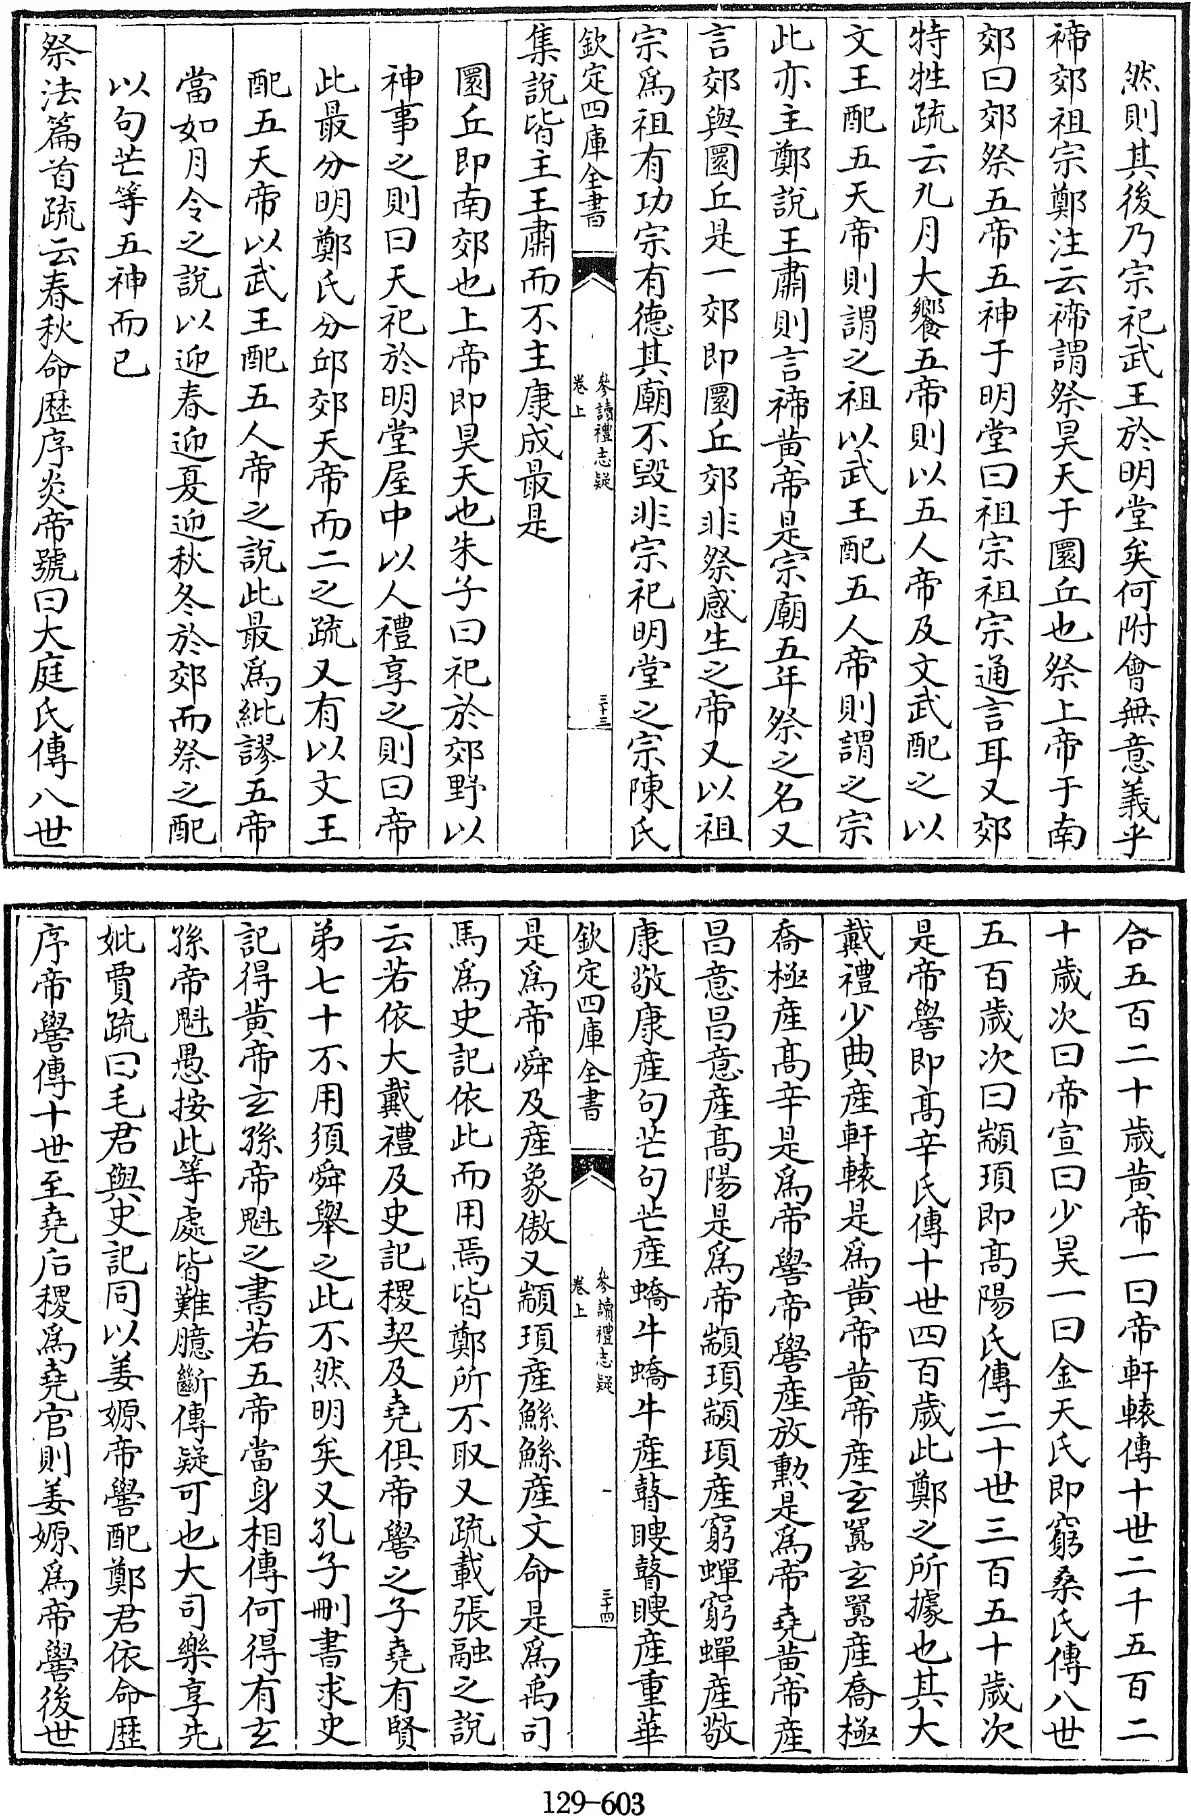 然則其後乃宗祀武王於明堂矣何附會無意義乎
禘郊祖宗鄭注云禘謂祭昊天于圜丘也祭上帝于南
郊曰郊祭五帝五神于明堂曰祖宗祖宗通言耳又郊
特牲疏云九月大饗五帝則以五人帝及文武配之以
文王配五天帝則謂之祖以武王配五人帝則謂之宗
此亦主鄭說王肅則言禘黄帝是宗廟五年祭之名又
言郊與圜丘是一郊即圜丘郊非祭感生之帝又以祖
宗爲祖有功宗有德其廟不毀非宗祀明堂之宗陳氏
欽定四庫全書
參讀禮志疑
卷上
三十三
集說皆主王肅而不主康成最是
圜丘即南郊也上帝即昊天也朱子曰祀於郊野以
神事之則曰天祀於明堂屋中以人禮享之則曰帝
此最分明鄭氏分邱郊天帝而二之疏又有以文王
配五天帝以武王配五人帝之說此最爲紕謬五帝
當如月令之說以迎春迎夏迎秋冬於郊而祭之配
以句芒等五神而已
祭法篇首疏云春秋命歴序炎帝號曰大庭氏傳八世
合五百二十歲黄帝一曰帝軒轅傳十世二千五百二
十歲次曰帝宣曰少昊一曰金天氏即窮桑氏傳八世
五百歲次曰顓頊即髙陽氏傳二十世三百五十歲次
是帝嚳即髙辛氏傳十世四百歲此鄭之所據也其大
戴禮少典産軒轅是爲黄帝黄帝産玄囂玄囂産喬極
喬極産髙辛是爲帝嚳帝嚳産放勲是爲帝堯黄帝産
昌意昌意産髙陽是爲帝顓頊顓頊産窮蟬窮蟬産敬
康敬康産句芒句芒産蟜牛蟜牛産瞽瞍瞽瞍産重華
欽定四庫全書
參讀禮志疑
卷上
三十四
是爲帝舜及産象傲又顓頊産鯀鯀産文命是爲禹司
馬爲史記依此而用焉皆鄭所不取又疏載張融之說
云若依大戴禮及史記稷契及堯俱帝嚳之子堯有賢
弟七十不用須舜舉之此不然明矣又孔子刪書求史
記得黄帝玄孫帝魁之書若五帝當身相傳何得有玄
孫帝魁愚按此等處皆難臆斷傳疑可也大司樂享先
妣賈疏曰毛君與史記同以姜嫄帝嚳配鄭君依命歴
序帝嚳傳十世至堯后稷爲堯官則姜嫄爲帝嚳後世
129-603